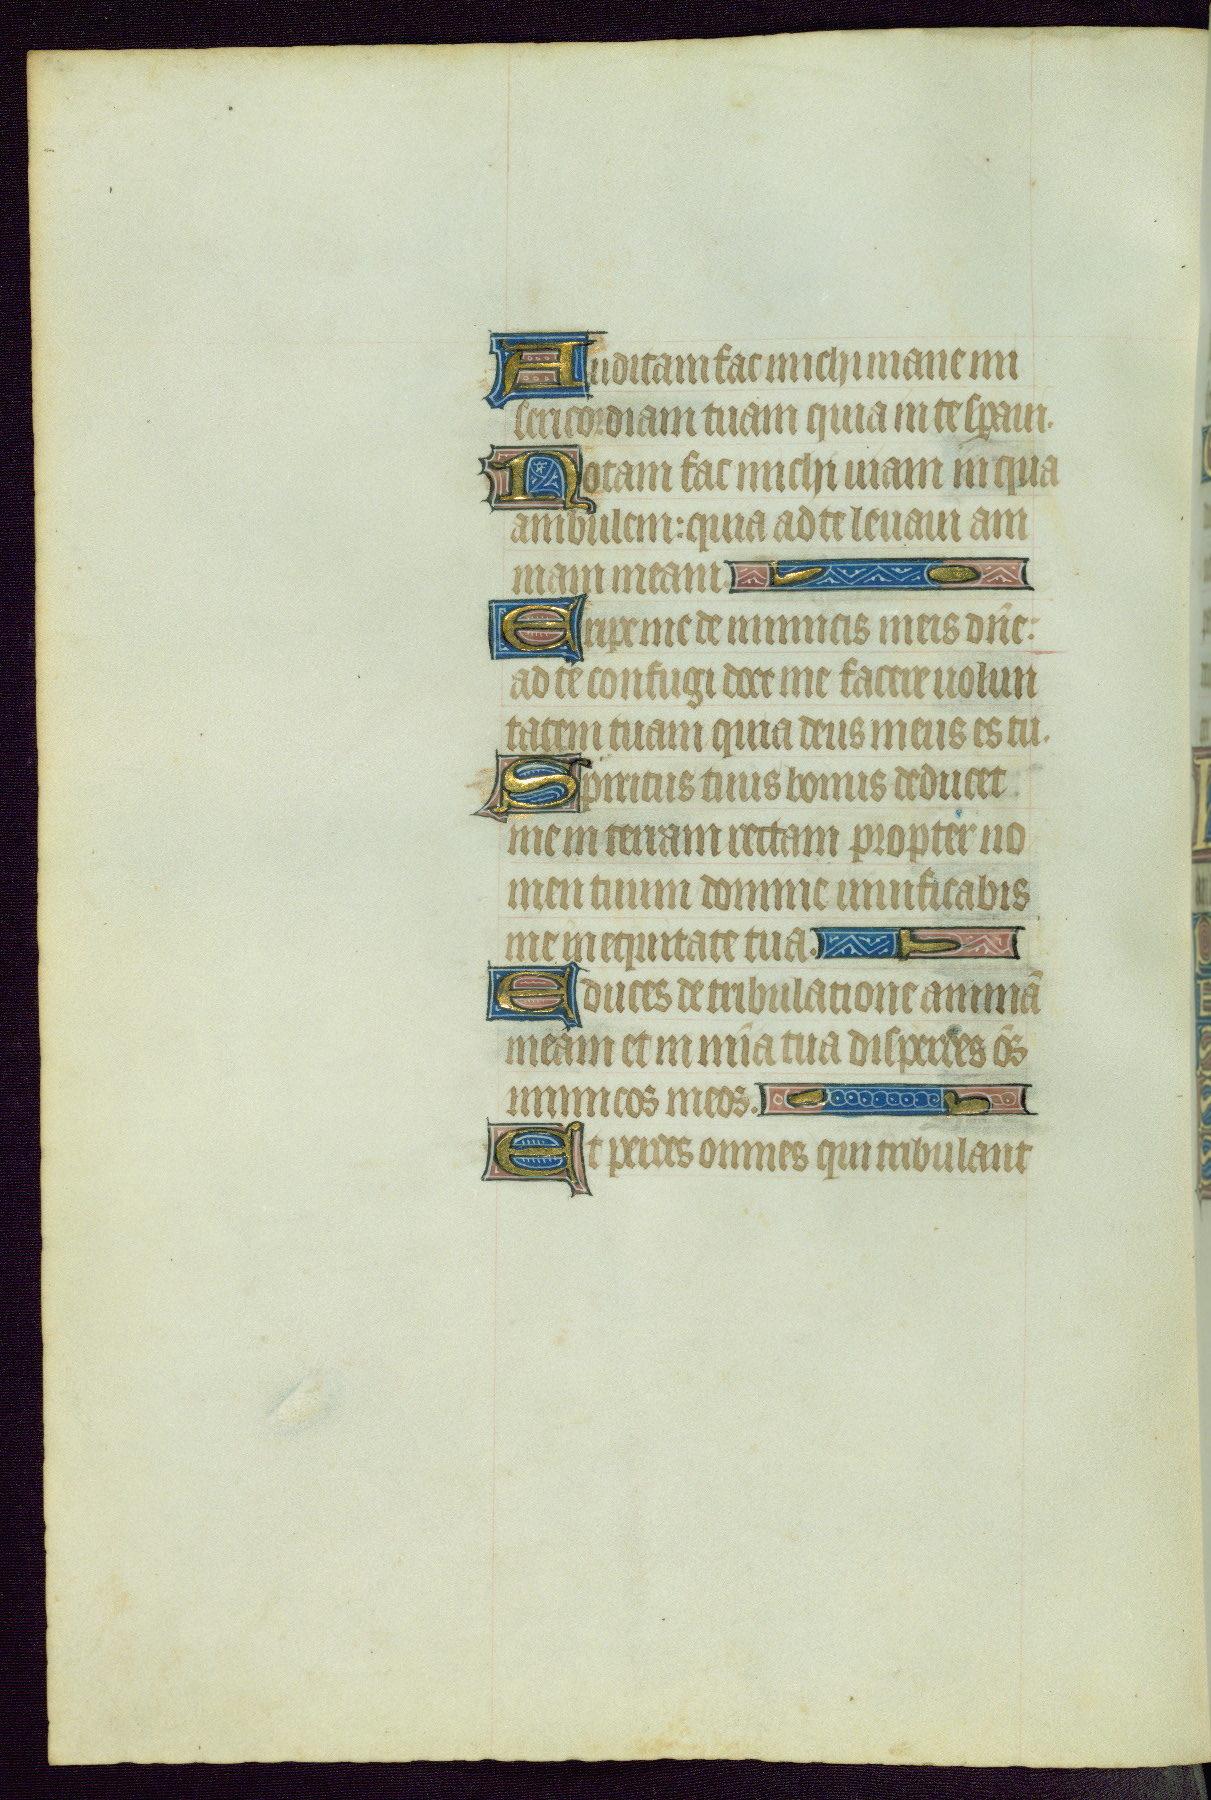 Auditam fac michi mane mi
sericordiam tuam quia in te spaui.
Notam fac michi uiam in qua
ambulem: quia ad te leuaui ani
mam meam.
Eripe me de inimicis meis dn̄e:
ad te confugi doce me facere uolun
tatem tuam quia deus meus es tu.
Spiritus tuus bonus deducet
me in terram rectam propter no
men tuum domine uiuificabis
me in equitate tua.
Educes de tribulatione animā
meam et in mīa tua disperdes ōs
inimicos meos.
Et perdes omnes qui tribulant